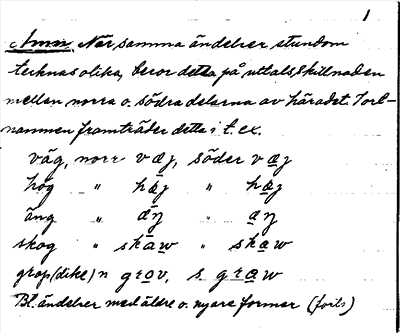 1
Anm. När samma ändelser stundom
tecknas olika, beror detta på uttalsskillnaden
mellan norra o. södra delarna av häradet. I ort-
namnen framträder detta i t. ex.
väg, norr væg, söder væg
hög " hæg " hæg
äng " æŋ " æŋ
skog " skaw " skaw
grop (dike) n grov, s graw
Bl. ändelser med äldre o. nyare former (forts)